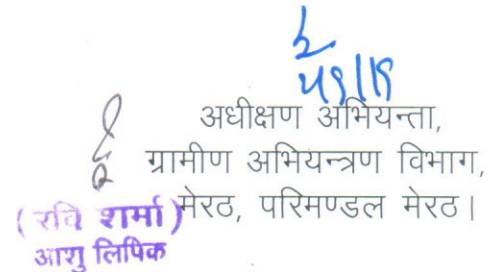 अधीक्षण अभियन्ता,
ग्रामीण अभियन्त्रण विभाग,
मेरठ, परिमण्डल मेरठ।
(रवि शर्मा)
आशु लिपिक